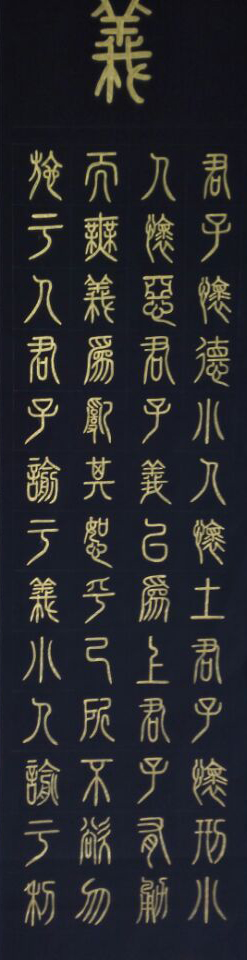 義
君子懷德小人懷土君子懷刑小
人懷惠君子義以爲上君子有勇
而無義爲亂其恕乎己所不欲勿
施于人君子諭于義小人諭于利